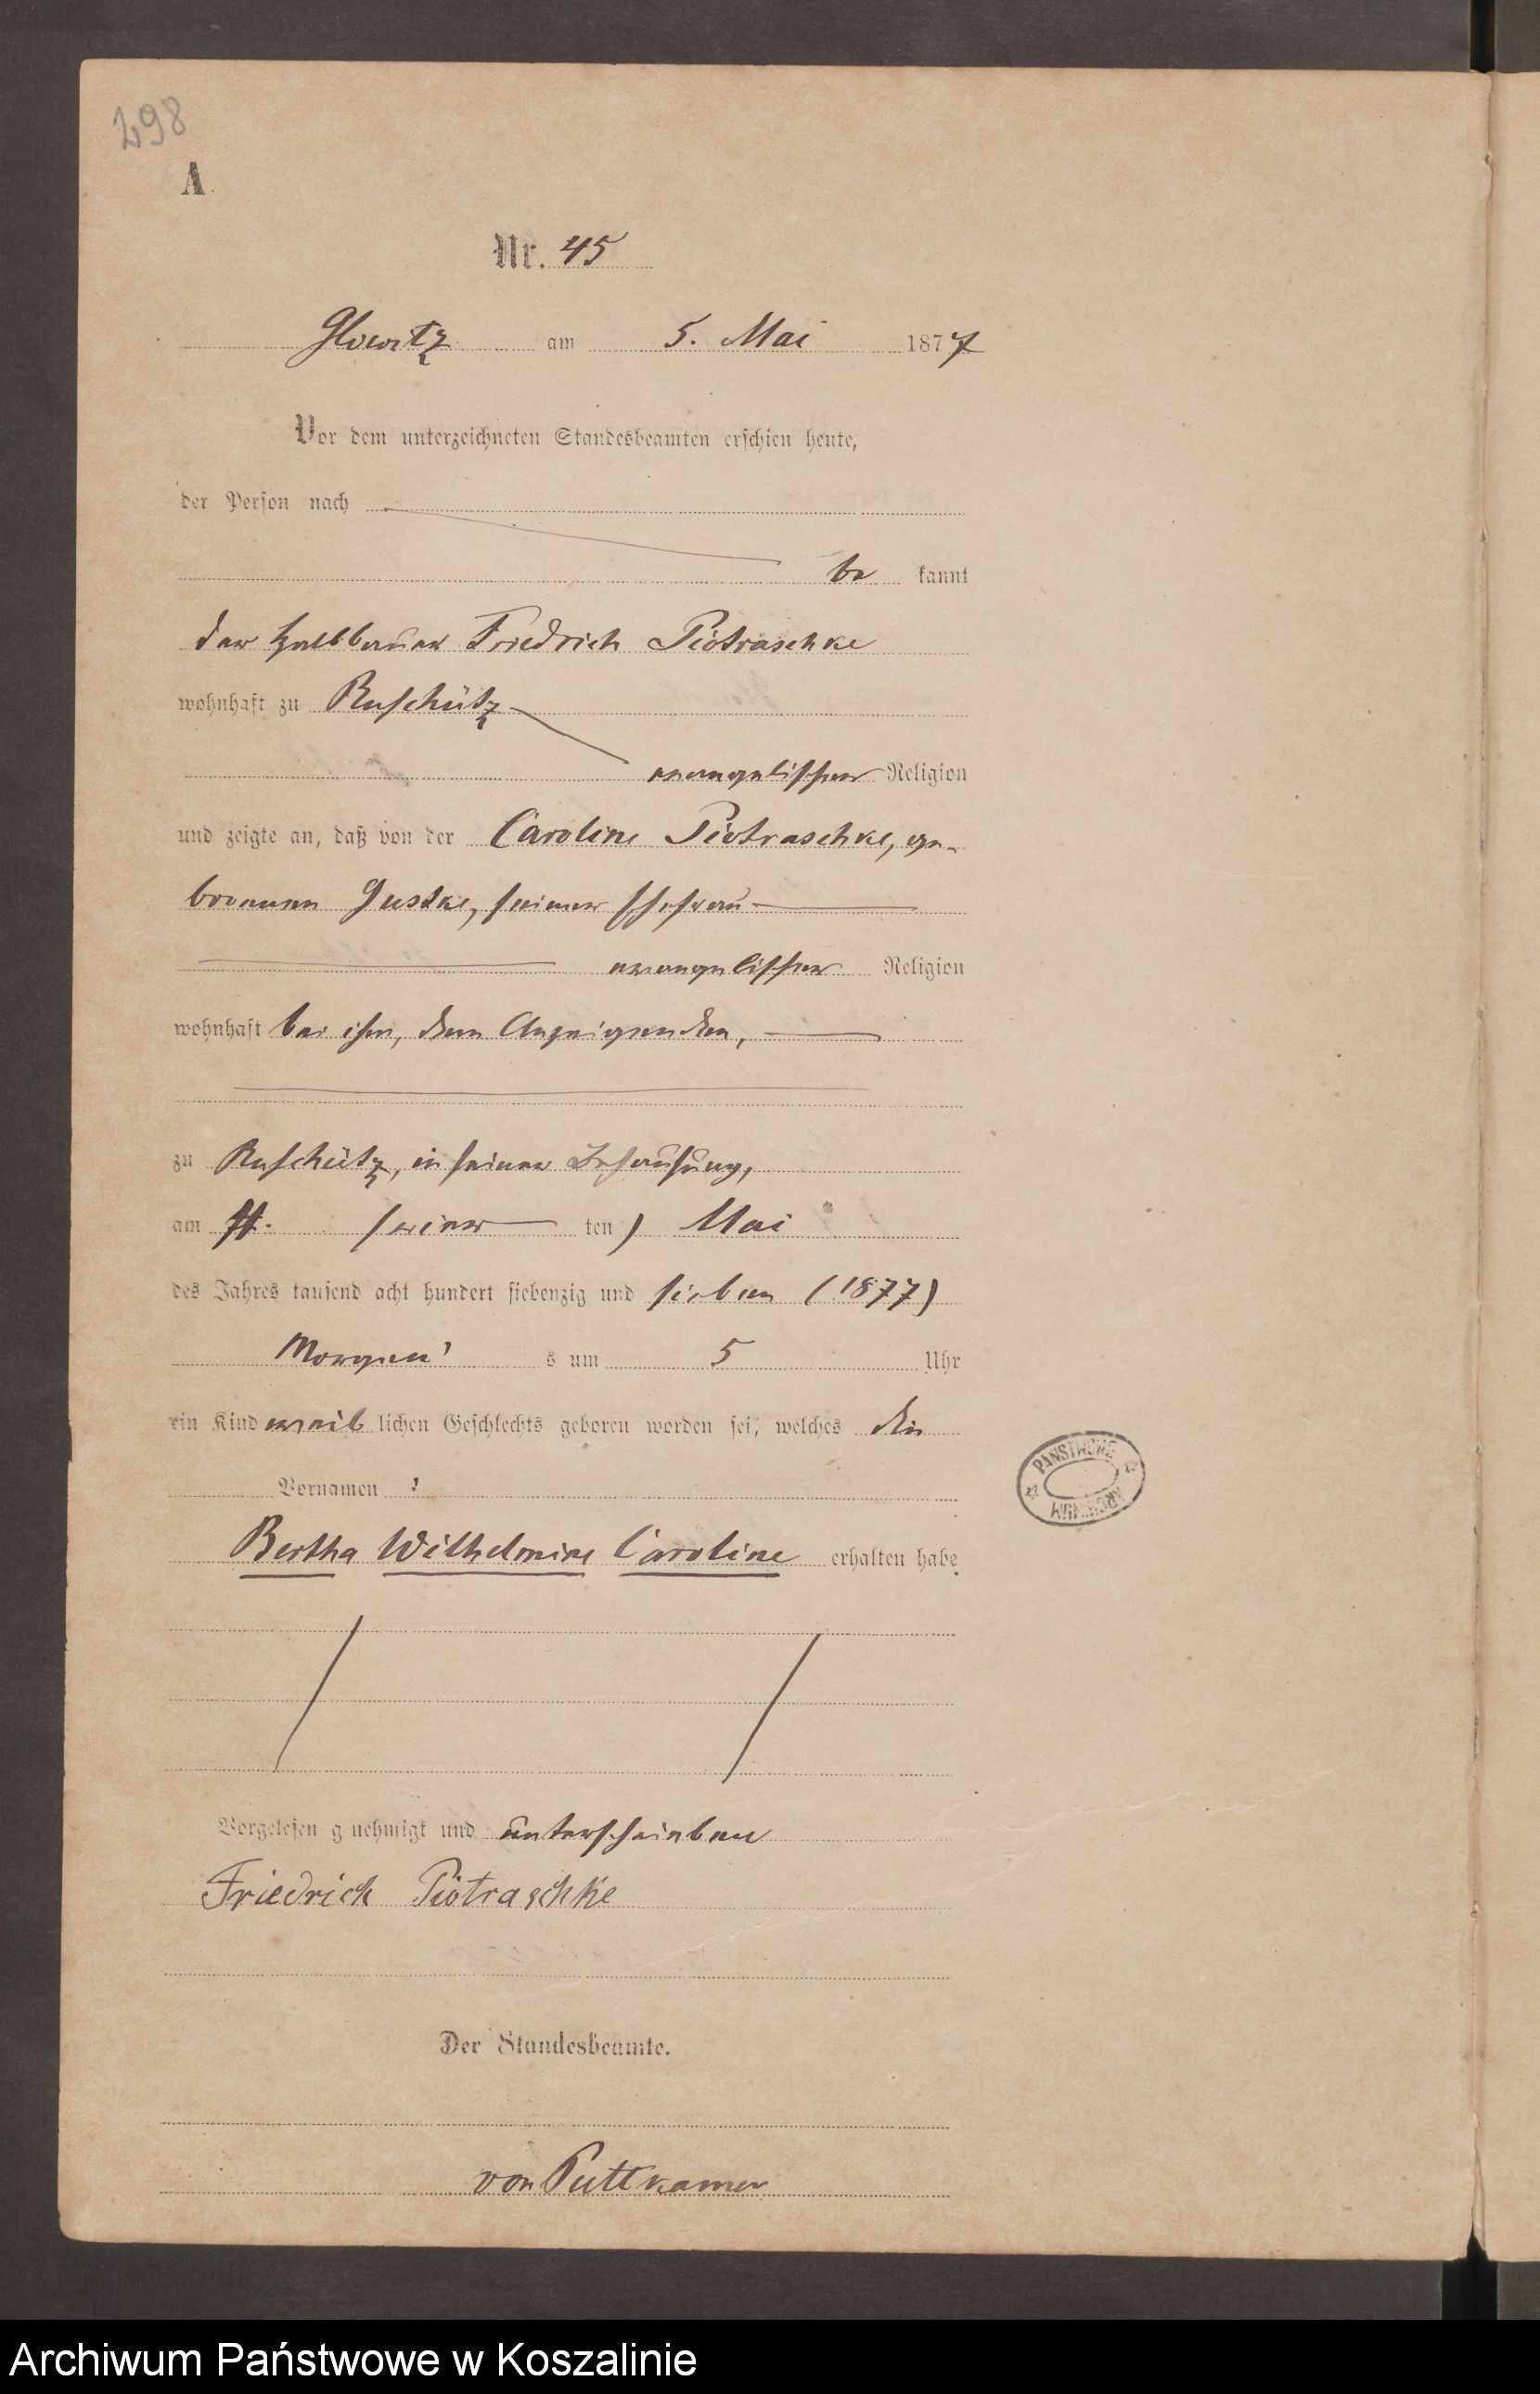 298
A.
Nr. 45
Glowitz am 5. Mai 1877
Vor dem unterzeichneten Standesbeamten erschien heute,
der Person nach
be kannt
der Halbbauer Friedrich Piotraschke
wohnhaft zu Ruschütz
evangelischer Religion
und zeigte an, daß von der Caroline Piotraschke, ge-
borenen Gustke, seiner Ehefrau
evangelischer Religion
wohnhaft bei ihm, dem Anzeigenden,
zu Ruschütz, in seiner Behausung,
am ten) Mai
des Jahres tausend acht hundert siebenzig und sieben (1877)
Morgen's um 5 Uhr
ein Kind weib lichen Geschlechts geboren worden sei, welches die
Vornamen :
Bertha Wilhelmine Caroline erhalten habe.
PANSTWOWE ARCHIWUM
Vorgelesen g nehmigt und unterschrieben
Friedrich Piotraschke
Der Standesbeamte.
von Puttkamer
Archiwum Państwowe w Koszalinie